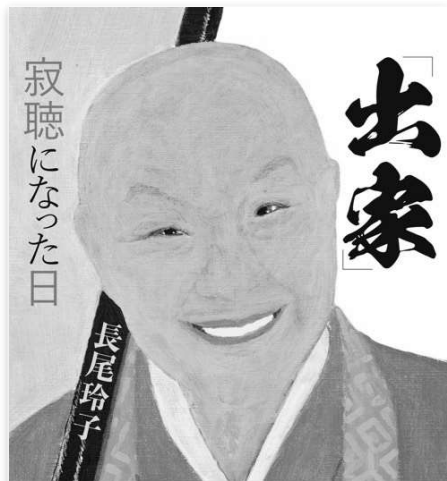 「出家」
寂聴になった日
長尾玲子